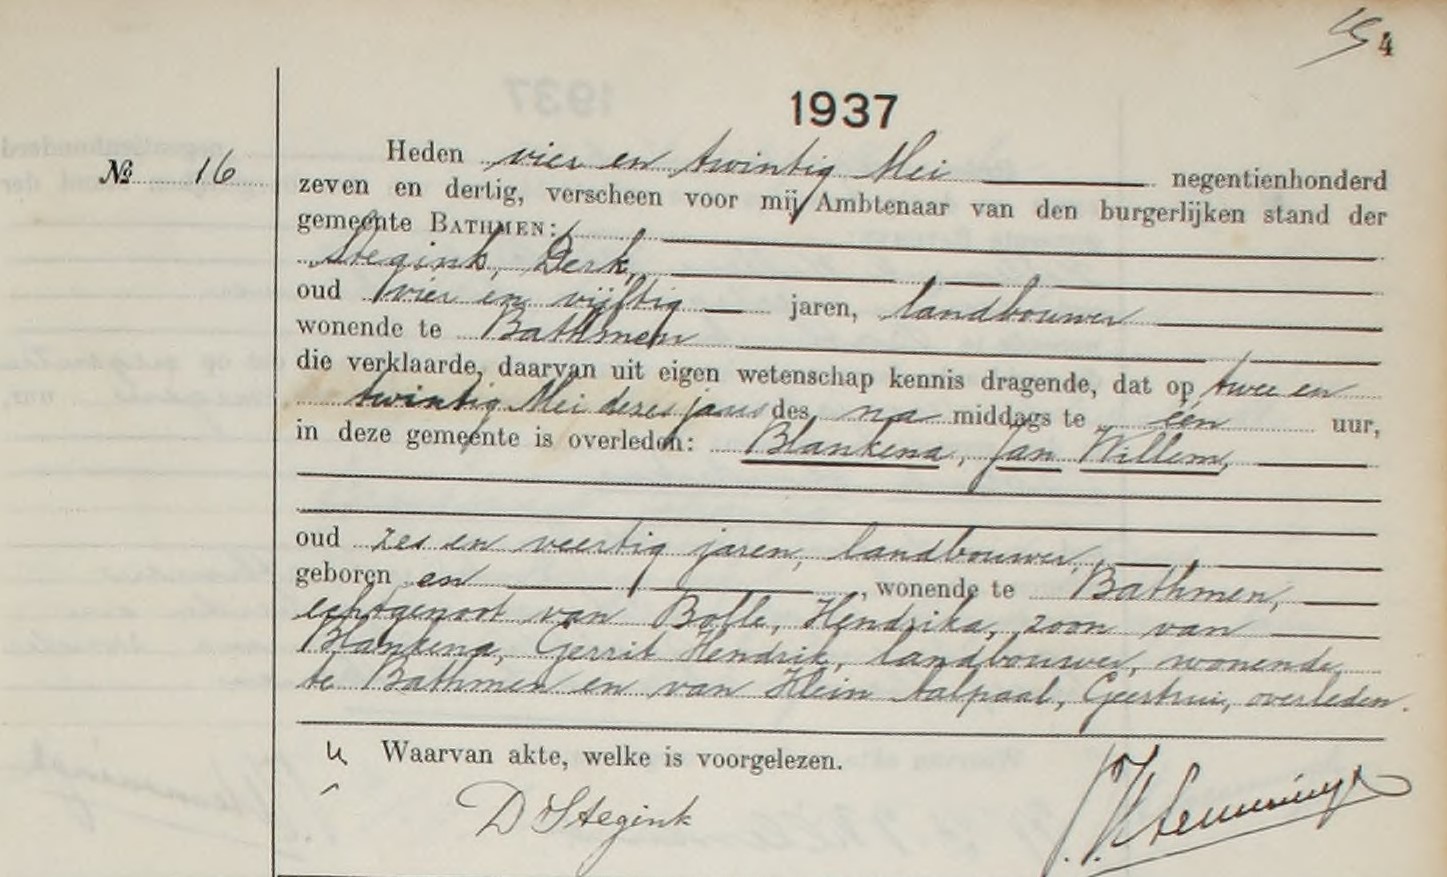 4
1937
№ 16
Heden vier en twintig Mei negentienhonderd
zeven en dertig, verscheen voor mij Ambtenaar van den burgerlijken stand der
gemeente BATHMEN:
Stegink, Derk,
oud vier en vijftig jaren, landbouwer
wonende te Bathmen
die verklaarde, daarvan uit eigen wetenschap kennis dragende, dat op twee en
twintig Mei dezes jaars des na middags te een uur,
in deze gemeente is overleden: Blankena, Jan Willem,
oud zes en veertig jaren, landbouwer,
geboren en , wonende te Bathmen,
echtgenoot van Bolle, Hendrika, zoon van
Blankena, Gerrit Hendrik, landbouwer, wonende
te Bathmen en van Klein Aalpaal, Geertrui, overleden.
Waarvan akte, welke is voorgelezen.
D Stegink